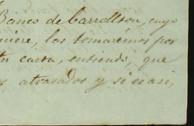 Banco de Carrollton, cuyo
quiere, los tomaremos por
tu carta, entiendo, que
atrasados y si asi,